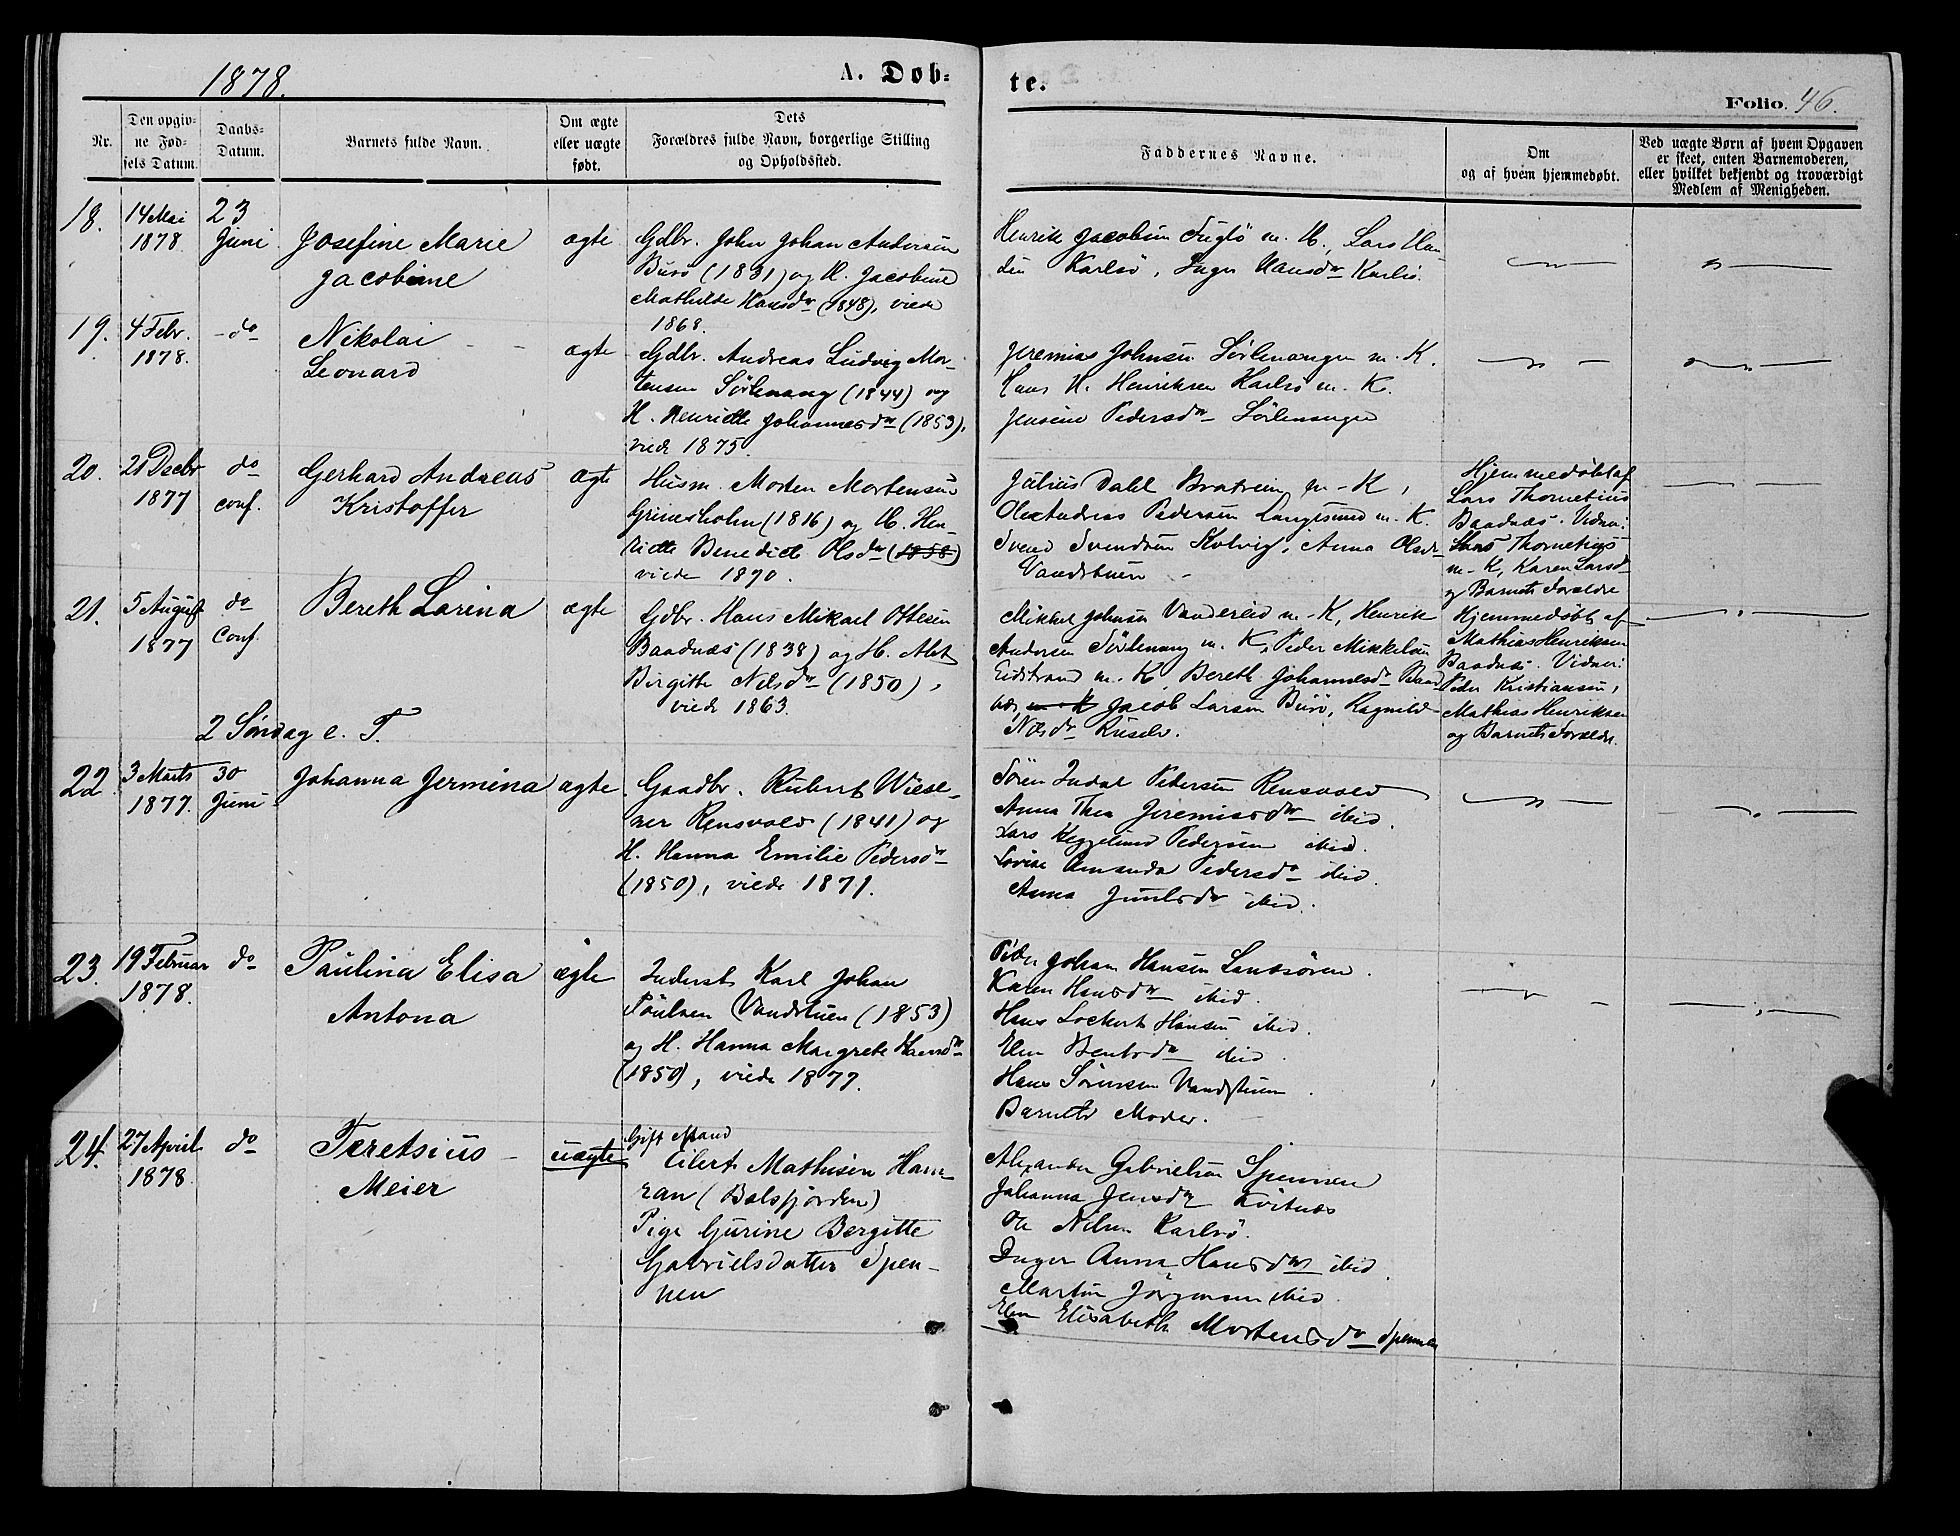 1878.
A. Døb-
te.
Folio. 46.
Nr.
Den opgiv-
ne Fød-
sels Datum.
Daabs-
Datum.
Barnets fulde Navn.
Om ægte
eller uægte
født.
Dets
Forældres fulde Navn, borgerlige Stilling
og Opholdssted.
Faddernes Navne.
Om
og af hvem hjemmedøbt.
Ved uægte Børn af hvem Opgaven
er skeet, enten Barnemoderen,
eller hvilket bekjendt og troværdigt
Medlem af Menigheden.
18.
14 Mai
1878.
23
Juni
Josefine Marie
Jacobine
ægte
Gdbr. John Johan Andersen
(1831) og H. Jacobine
Mathilde Hansdr (1848), viede
1868.
Henrik Jacobsen Fuglø m. H., Lars Han
sen Karlsø, Inger Hansdr Karlsø.
19.
4 Febr.
1878.
do
Nikolai
Leonard
ægte
Gdbr. Andreas Ludvig Mor-
tensen Sørlenang (1844) og
H. Henriette Johannesdr (1853),
viede 1875.
Jeremias Johnsen Sørlenangen m. K.
Hans H. Henriksen Karlsø m. K.
Jensine Pedersdr Sørlenangen
20.
21 Decbr
1877
do
conf.
Gerhard Andreas
Kristoffer
Ægte
Husm. Morten Mortensen
Grimsholm (1816) og H. Hen-
riette Benedicte Olsdr (1858)
viede 1870.
Julius Dahl Bratrein m-K,
Ole Andreas Pedersen Langesund m. K.
Svend Svendsen Kolvig, Anna Olsdr
Vandstuen
Hjemmedøbt af
Lars Thometius
Baadnæs. Vidner:
Lars Thometius
m-K, Karen Larsdr
og Barnets Forældre
21.
5 August
1877
do
Conf.
Bereth Larina
ægte
Gdbr. Hans Mikael Olsen
Baadnæs (1838) og H. Alet
Birgitte Nilsdr (1850),
viede 1863.
Mikkel Johnsen Vandereid m-K, Henrik
Andersen Sørlenang m. K, Peder Mikkelsen
Eidstrand m. K, Bereth Johannesdr Baad
næs, Jacob Larsen Burø, Ragnild
Nilsdr Ruselv.
Hjemmedøbt af
Mathias Henriksen
Baadnæs. Vidner:
Peder Kristiansen,
Mathias Henriksen
og Barnets Forældre.
2 Søndag e. T.
22.
3 Marts
1877.
30
Juni
Johanna Jermina
ægte
Gaadbr. Rubert Wiese-
ner Rensvold (1841) og
H. Hanna Emilie Pedersdr
(1850), viede 1871.
Søren Indal Pedersen Rensvold
Anna Thea Jeremiasdr ibid.
Lars Pedersen ibid.
Lovise Amanda Pedersdr ibid.
Anna ibid.
23.
19 Februar
1878.
do
Paulina Elisa
Antona
ægte
Inderst Karl Johan
Poulsen Vandstuen (1853)
og H. Hanna Margrete Hansdr
(1850), viede 1877.
Peder Johan Hansen Sandsøren.
Karen Hansdr ibid.
Hans Lockert Hansen ibid.
Elen Bentsdr ibid.
Hans Sørensen Vandstuen.
Barnets Moder.
24.
27 April
1878.
do
Teretsius
Meier
uægte
Gift Mand
Eilert Mathisen Ham-
ran (Balsfjorden)
Pige Gurine Bergitte
Gabrielsdatter Spen-
nen
Alexander Gabrielsen Spennen
Johanna Jensdr Kvitnæs
Ole Nilsen Karlsø.
Inger Anna Hansdr ibid.
Martin Jörgensen ibid.
Elen Elisabeth Mortensdr Spennen